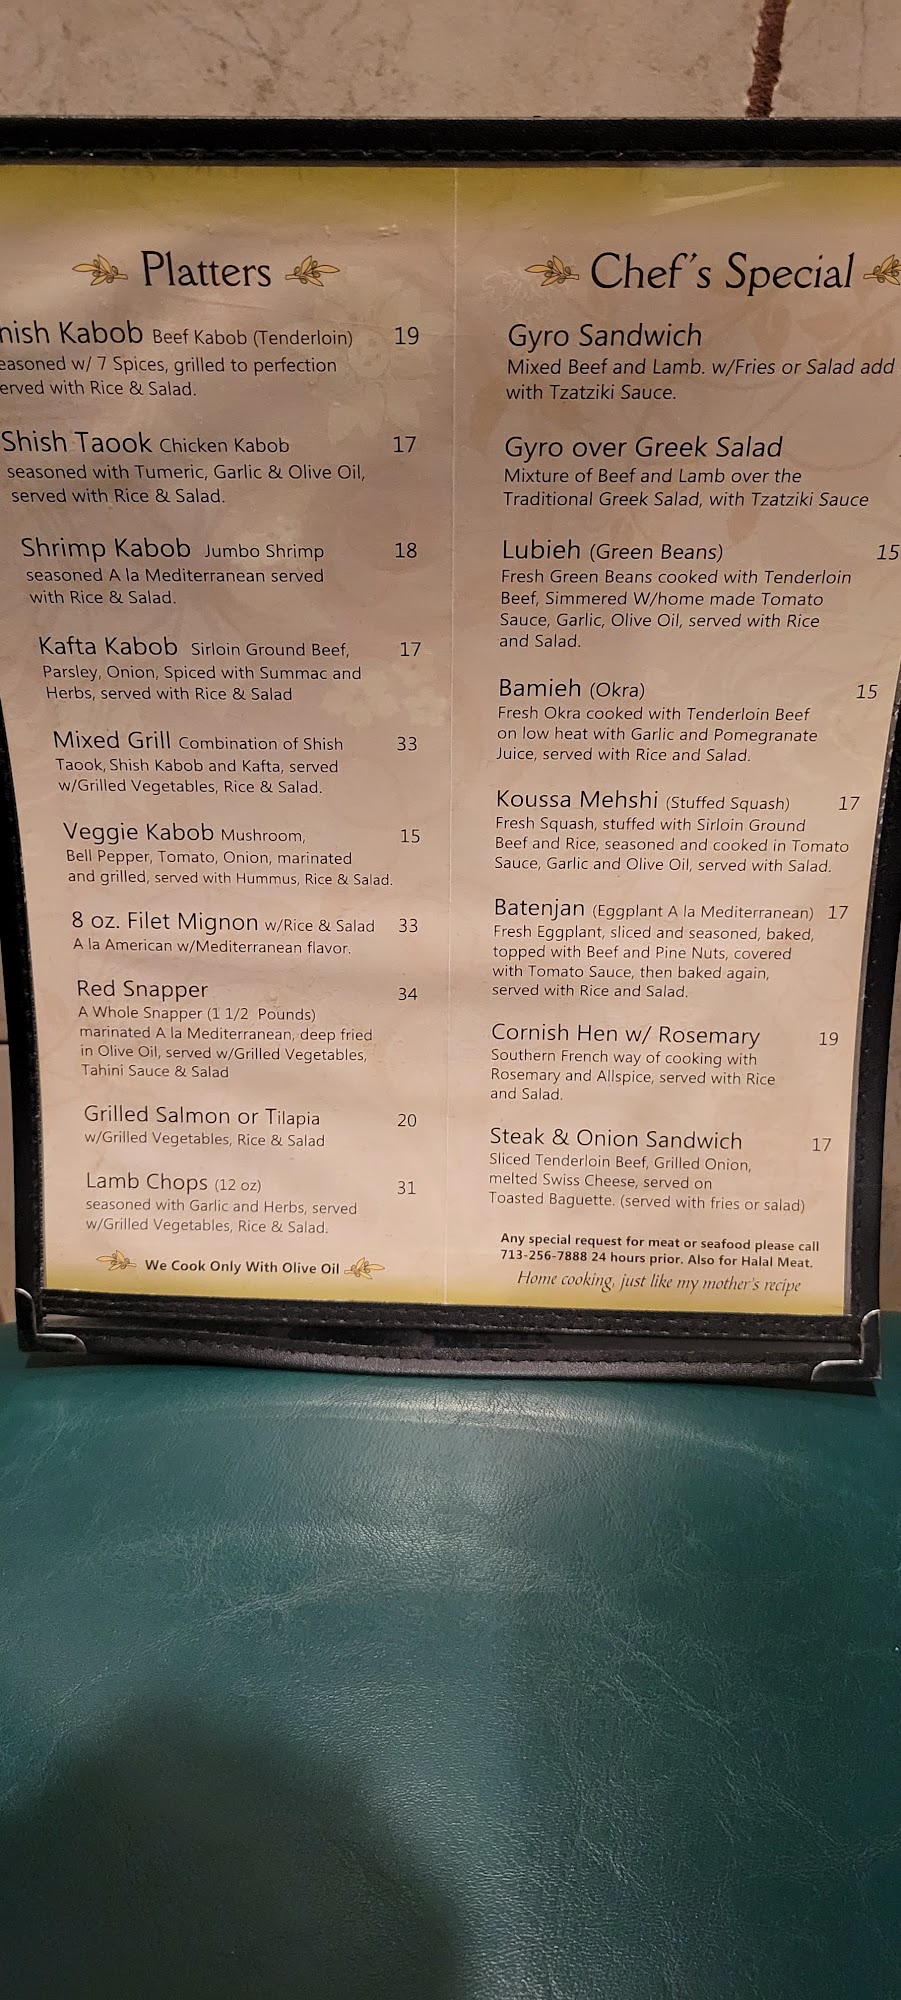 Platters
nish Kabob Beef Kabob (Tenderloin) 19
easoned w/ 7 Spices, grilled to perfection
erved with Rice & Salad.
Shish Taook Chicken Kabob 17
seasoned with Tumeric, Garlic & Olive Oil,
served with Rice & Salad.
Shrimp Kabob Jumbo Shrimp 18
seasoned A la Mediterranean served
with Rice & Salad.
Kafta Kabob Sirloin Ground Beef, 17
Parsley, Onion, Spiced with Summac and
Herbs, served with Rice & Salad
Mixed Grill Combination of Shish 33
Taook, Shish Kabob and Kafta, served
w/Grilled Vegetables, Rice & Salad.
Veggie Kabob Mushroom, 15
Bell Pepper, Tomato, Onion, marinated
and grilled, served with Hummus, Rice & Salad.
8 oz. Filet Mignon w/Rice & Salad 33
A la American w/Mediterranean flavor.
Red Snapper 34
A Whole Snapper (1 1/2 Pounds)
marinated A la Mediterranean, deep fried
in Olive Oil, served w/Grilled Vegetables,
Tahini Sauce & Salad
Grilled Salmon or Tilapia 20
w/Grilled Vegetables, Rice & Salad
Lamb Chops (12 oz) 31
seasoned with Garlic and Herbs, served
w/Grilled Vegetables, Rice & Salad.
We Cook Only With Olive Oil
Chef's Special
Gyro Sandwich
Mixed Beef and Lamb. w/Fries or Salad add
with Tzatziki Sauce.
Gyro over Greek Salad
Mixture of Beef and Lamb over the
Traditional Greek Salad, with Tzatziki Sauce
Lubieh (Green Beans) 15
Fresh Green Beans cooked with Tenderloin
Beef, Simmered W/home made Tomato
Sauce, Garlic, Olive Oil, served with Rice
and Salad.
Bamieh (Okra) 15
Fresh Okra cooked with Tenderloin Beef
on low heat with Garlic and Pomegranate
Juice, served with Rice and Salad.
Koussa Mehshi (Stuffed Squash) 17
Fresh Squash, stuffed with Sirloin Ground
Beef and Rice, seasoned and cooked in Tomato
Sauce, Garlic and Olive Oil, served with Salad.
Batenjan (Eggplant A la Mediterranean) 17
Fresh Eggplant, sliced and seasoned, baked,
topped with Beef and Pine Nuts, covered
with Tomato Sauce, then baked again,
served with Rice and Salad.
Cornish Hen w/ Rosemary 19
Southern French way of cooking with
Rosemary and Allspice, served with Rice
and Salad.
Steak & Onion Sandwich 17
Sliced Tenderloin Beef, Grilled Onion,
melted Swiss Cheese, served on
Toasted Baguette. (served with fries or salad)
Any special request for meat or seafood please call
713-256-7888 24 hours prior. Also for Halal Meat.
Home cooking, just like my mother's recipe